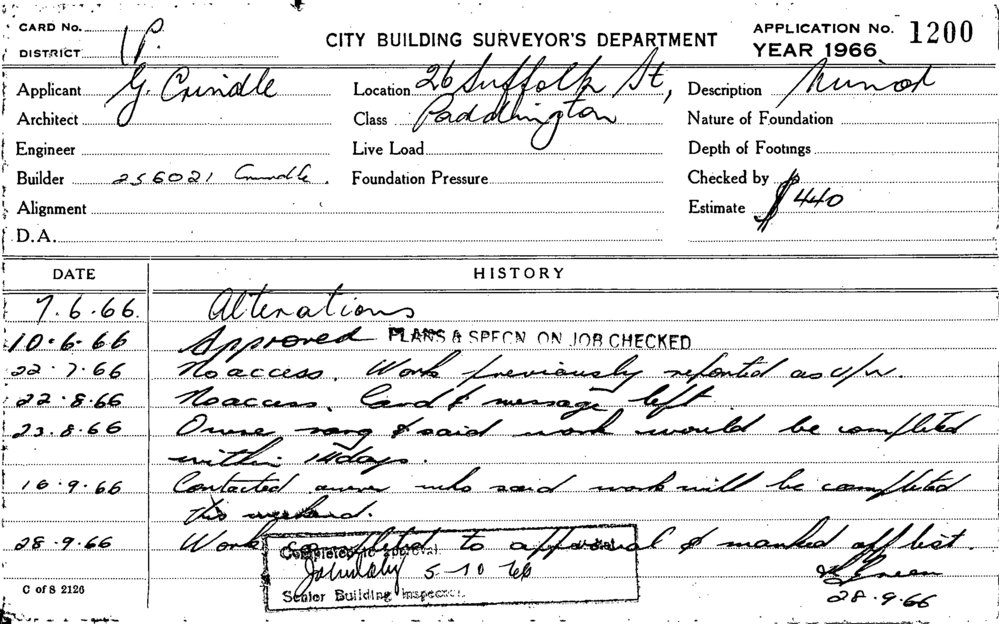 CARD No.
DISTRICT
CITY BUILDING SURVEYOR'S DEPARTMENT
APPLICATION No. 1200
YEAR 1966
Applicant G. Crindle
Location 26 Suffolk St,
Description Minor
Architect
Class Paddington
Nature of Foundation
Engineer
Live Load
Depth of Footings
Builder 256021 Crindle.
Foundation Pressure
Checked by
Alignment
Estimate $440
D.A.
DATE HISTORY
7.6.66. Alterations
10.6.66 Approved PLANS & SPECN ON JOB CHECKED
22.7.66 No access. Work previously reported as u/w.
22.8.66 No access. Card & message left
23.8.66 Owner rang & said work would be completed
within 14 days.
16.9.66 Contacted owner who said work will be completed
this weekend.
28.9.66 Work completed to approval & marked off list.
Completed to approval
5-10 66
Senior Building Inspector.
Green
28.9.66
C of S 2126